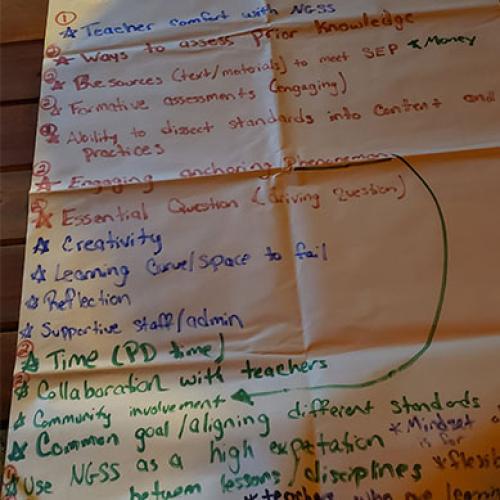 ① Teacher comfort with NGSS
② Ways to assess prior knowledge
* Money
② Resources (text/materials) to meet SEP
② Formative assessments (engaging)
① Ability to dissect standards into content and
practices
② Engaging anchoring Phenomenon
② Essential Question (driving question)
Creativity
Learning Curve/space to fail
Reflection
Supportive staff/admin
② Time (PD time)
③ Collaboration with teachers
Community involvement
Common goal/aligning different standards
* Mindset
is for
Use NGSS as a high expetation
between lessons/disciplines